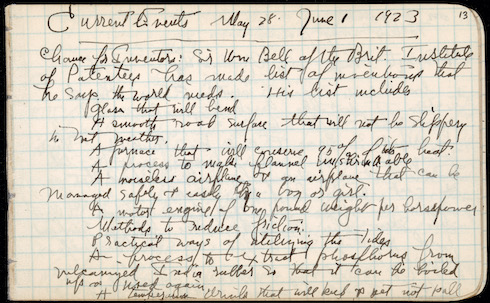 13
Current Events May 28. June 1 1923
Chance for Inventors: Sir Wm Bell of the Brit. Institute
of Patentees has made list of inventions that
he says the world needs. His list includes
Glass that will bend
A smooth road surface that will not be slippery
in wet weather.
A furnace that will conserve 95% of its heat
A process to make flannel unshrinkable
A noiseless airplane & an airplane that can be
managed safely & easily by a boy or girl.
A motor engine of one pound weight per horsepower
Methods to reduce friction.
Practical ways of utilizing the Tides
A process to extract phosphorus from
vulcanized India rubber so that it can be boiled
up & used again
A temperance drink that will keep & yet not pall